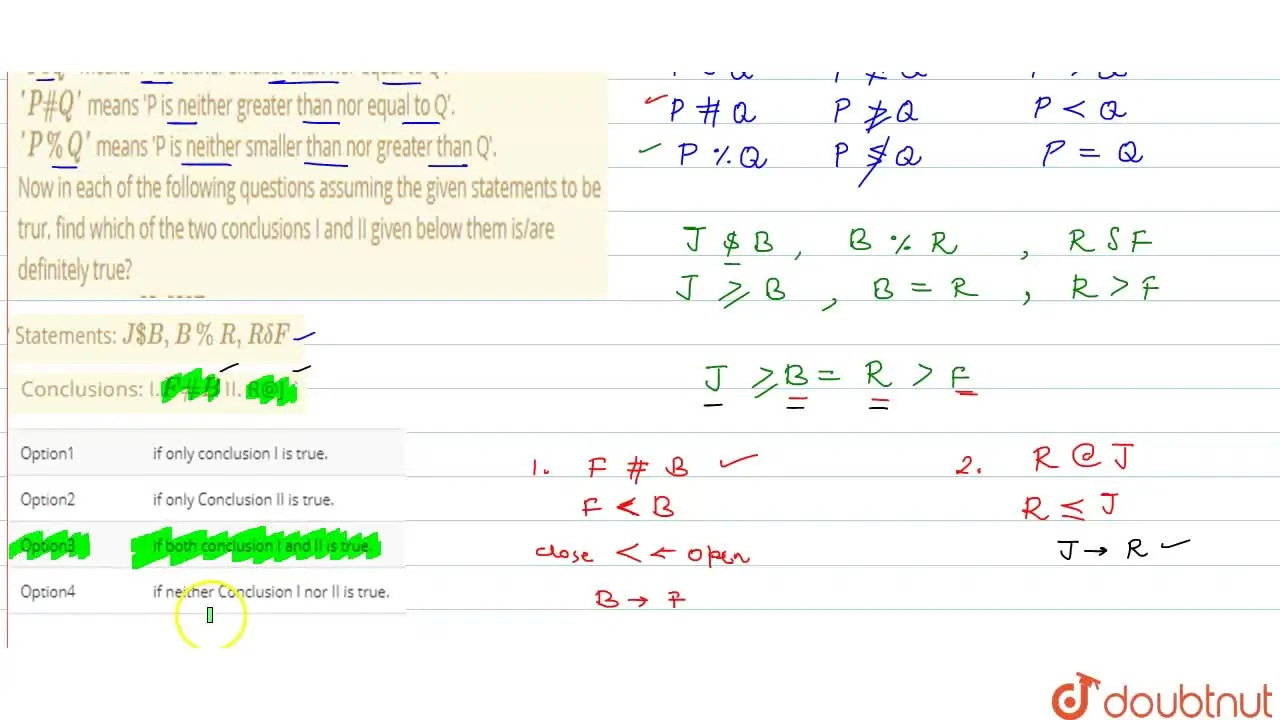 'P#Q' means 'P is neither greater than nor equal to Q'.
'P%Q' means 'P is neither smaller than nor greater than Q'.
Now in each of the following questions assuming the given statements to be
trur. find which of the two conclusions I and II given below them is/are
definitely true?
Statements: J$B, B% R, RδF
Conclusions: I. F#B II. R@J
Option1 if only conclusion I is true.
Option2 if only Conclusion II is true.
Option3 if both conclusion I and II is true.
Option4 if neither Conclusion I nor II is true.
P # Q P ≱ Q P < Q
P % Q P ≸ Q P = Q
J $ B, B % R, R δ F
J ≥ B, B = R, R > F
J ≥ B = R > F
1. F # B
F < B
close < ← open
B → F
2. R @ J
R ≤ J
J → R
doubtnut